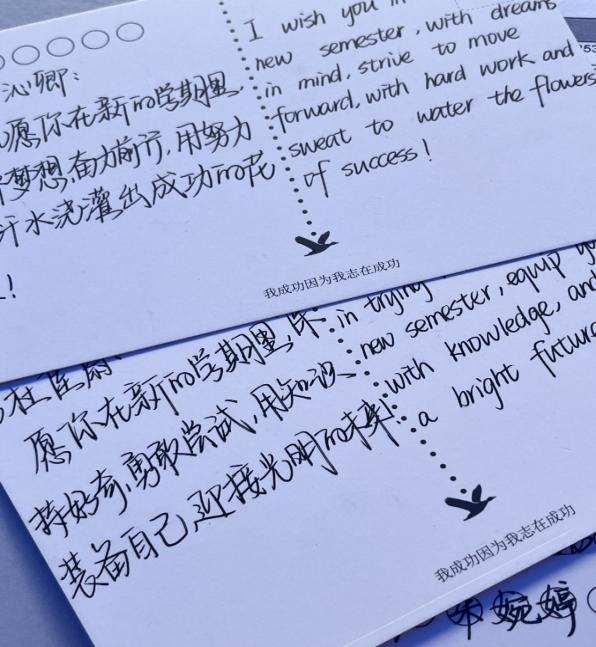 沁卿:
愿你在新的学期里,
梦想,奋力前行,用努力
汗水浇灌出成功的花
!
I wish you in
new semester, with dreams
in mind, strive to move
forward, with hard work and
sweat to water the flowers
of success!
我成功因为我志在成功
愿你在新的学期里,保
持好奇,勇敢尝试,用知识
装备自己,迎接光明的未来!
in trying
new semester, equip
with knowledge, and
a bright future
我成功因为我志在成功
朱婉婷